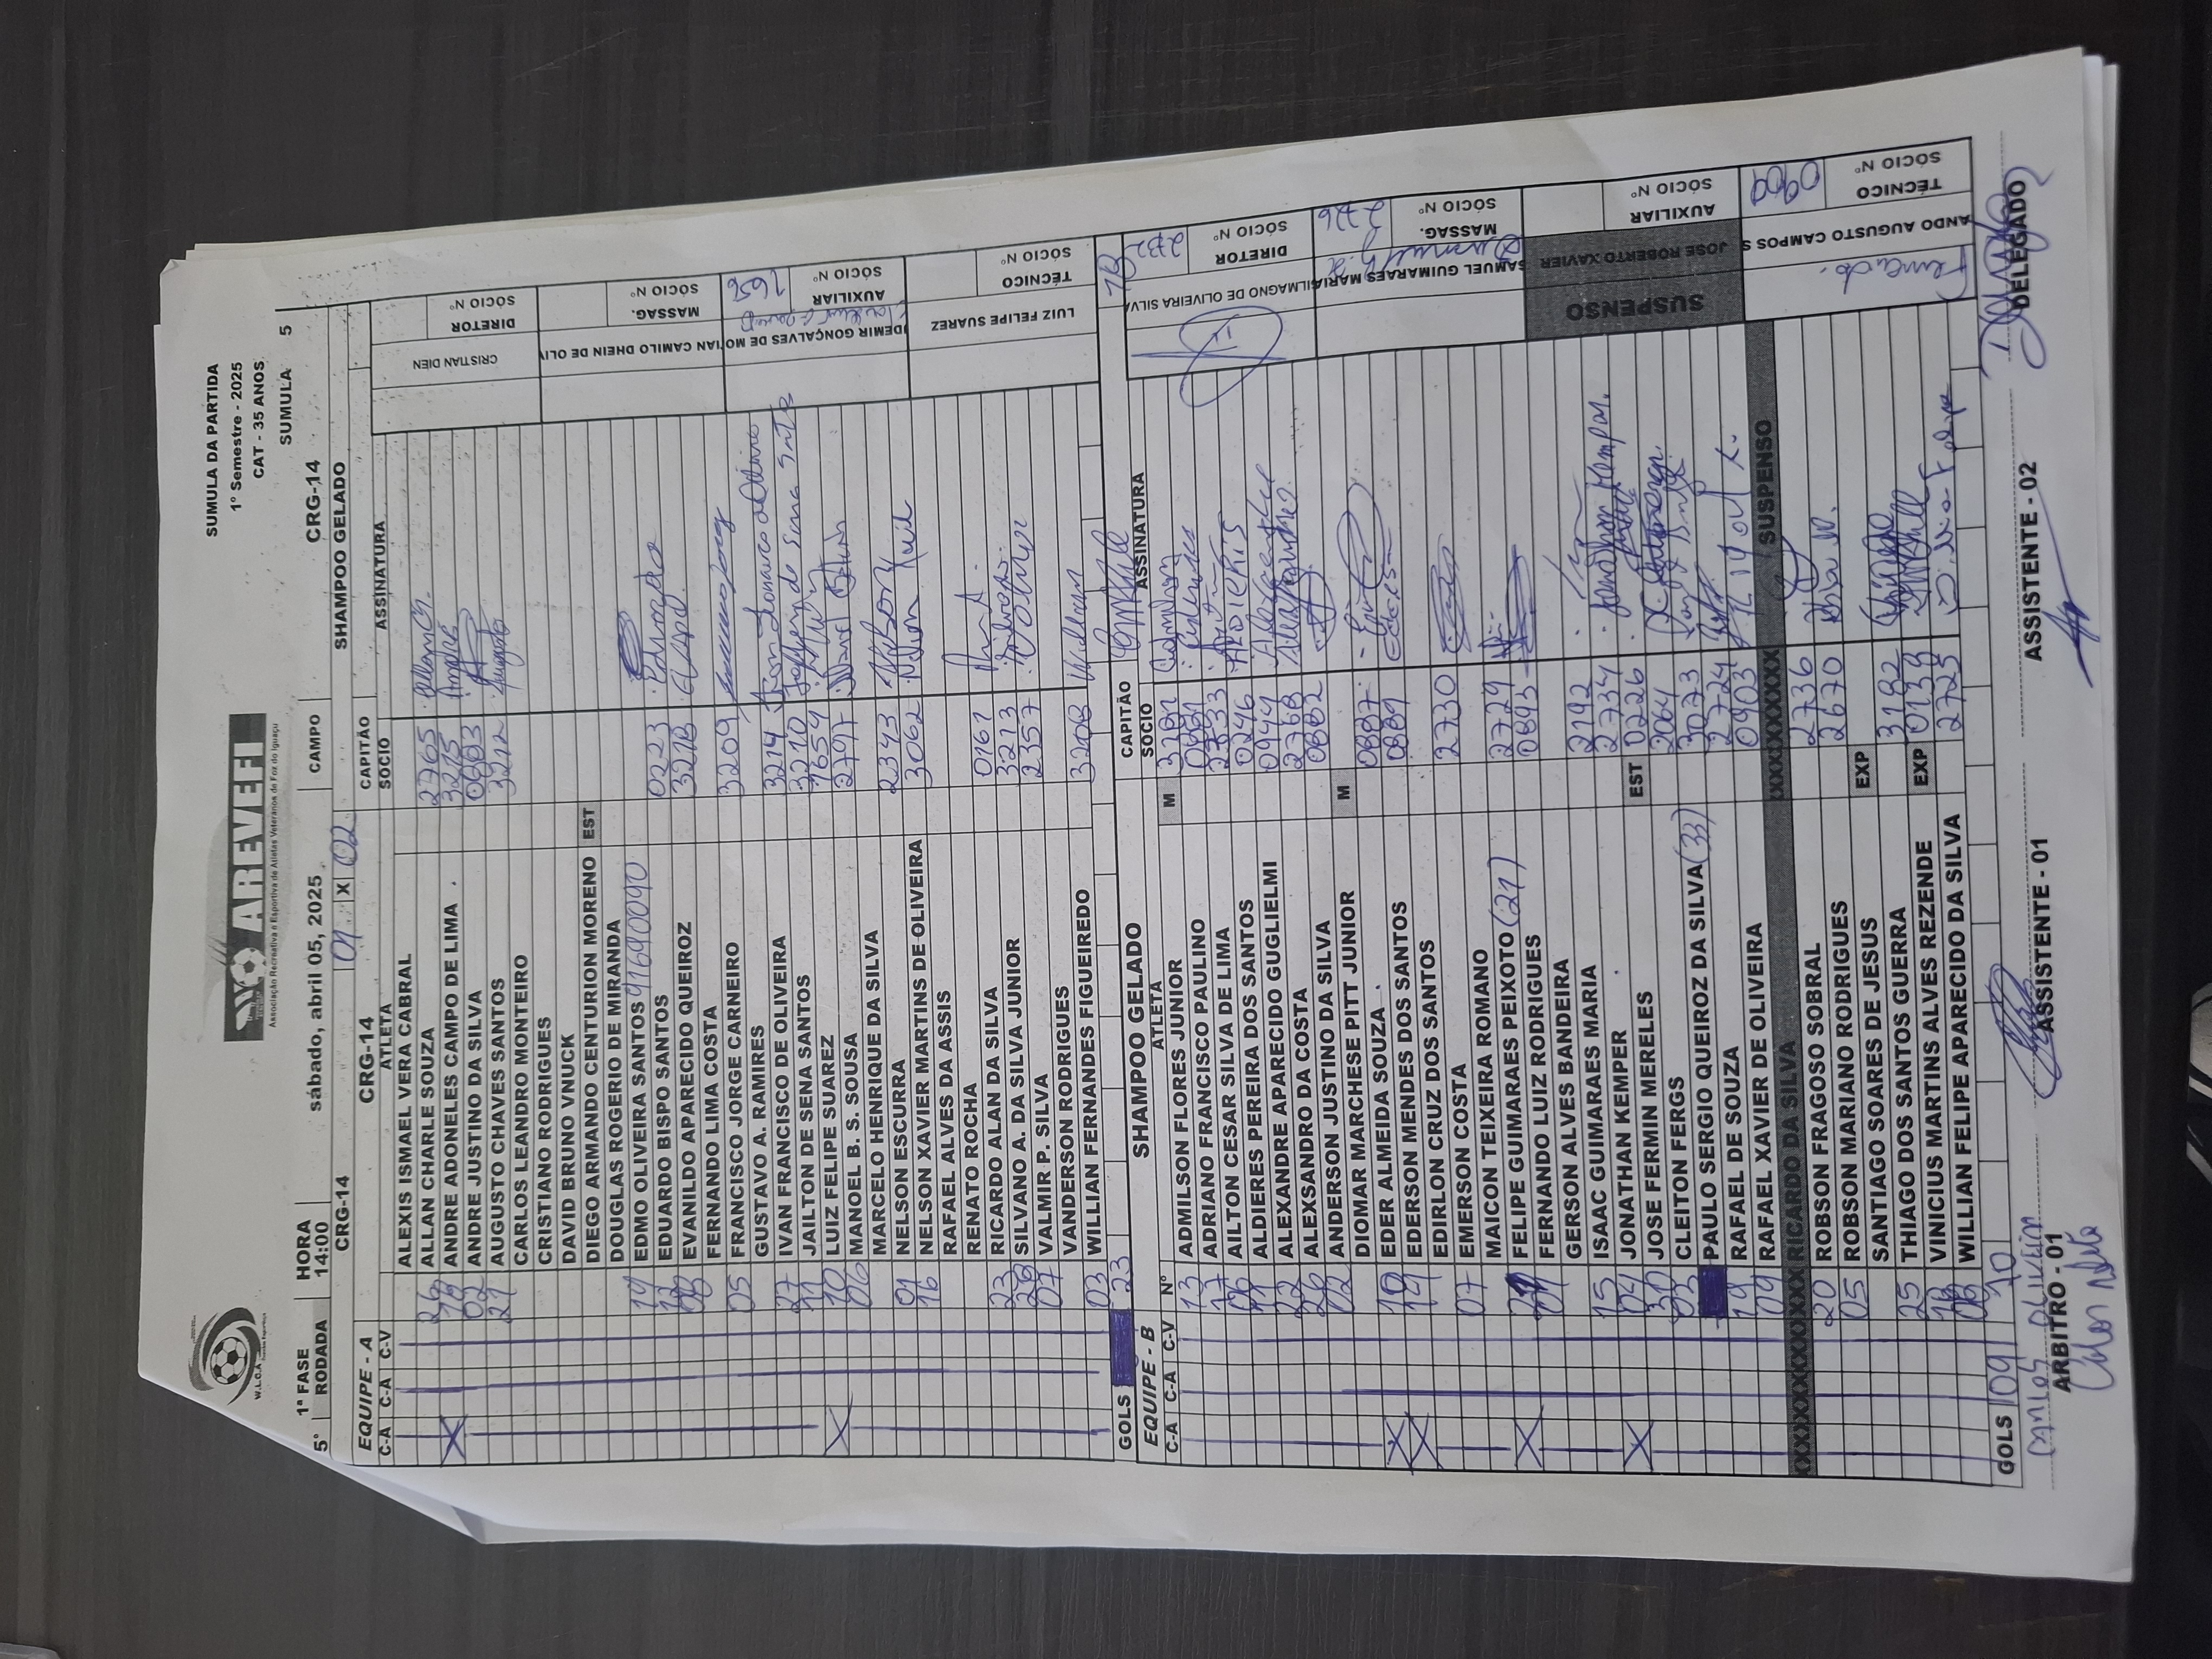 W.L.C.A
AREVEFI
Associação Recreativa e Esportiva de Atletas Veteranos de Foz do Iguaçu
SUMULA DA PARTIDA
1º Semestre - 2025
CAT - 35 ANOS
1ª FASE HORA sábado, abril 05, 2025 CAMPO CRG-14 SUMULA 5
5ª RODADA 14:00
CRG-14 01 X 02 SHAMPOO GELADO
EQUIPE - A CRG-14 CAPITÃO
C-A C-A C-V Nº ATLETA SOCIO ASSINATURA
ALEXIS ISMAEL VERA CABRAL
26 ALLAN CHARLE SOUZA 2765
ANDRE ADONELES CAMPO DE LIMA 3215 André
02 ANDRE JUSTINO DA SILVA
21 AUGUSTO CHAVES SANTOS 3212 Augusto
CARLOS LEANDRO MONTEIRO
CRISTIANO RODRIGUES
DAVID BRUNO VNUCK
DIEGO ARMANDO CENTURION MORENO EST
DOUGLAS ROGERIO DE MIRANDA
19 EDMO OLIVEIRA SANTOS 91690090
EDUARDO BISPO SANTOS 0223 Eduardo
EVANILDO APARECIDO QUEIROZ 3218
FERNANDO LIMA COSTA
05 FRANCISCO JORGE CARNEIRO 3209
GUSTAVO A. RAMIRES
27 IVAN FRANCISCO DE OLIVEIRA 3214
11 JAILTON DE SENA SANTOS 3210
10 LUIZ FELIPE SUAREZ 1654
06 MANOEL B. S. SOUSA 2797
MARCELO HENRIQUE DA SILVA
01 NELSON ESCURRA 2343 Nelson
16 NELSON XAVIER MARTINS DE OLIVEIRA 3062 Nelson
RAFAEL ALVES DA ASSIS
RENATO ROCHA
23 RICARDO ALAN DA SILVA 0161
SILVANO A. DA SILVA JUNIOR 3213
07 VALMIR P. SILVA 2357 Valmir
VANDERSON RODRIGUES
03 WILLIAN FERNANDES FIGUEIREDO 3208 Willian
GOLS 23
CRISTIAN DIEN
DIRETOR SÓCIO Nº
IAN CAMILO DHEIN DE OLIV
MASSAG. SÓCIO Nº
DEMIR GONÇALVES DE MO
AUXILIAR SÓCIO Nº 1656
LUIZ FELIPE SUAREZ
TÉCNICO SÓCIO Nº
EQUIPE - B SHAMPOO GELADO CAPITÃO
C-A C-A C-V Nº ATLETA SOCIO ASSINATURA
13 ADMILSON FLORES JUNIOR M 3281
17 ADRIANO FRANCISCO PAULINO
AILTON CESAR SILVA DE LIMA 2733
11 ALDIERES PEREIRA DOS SANTOS 0246
22 ALEXANDRE APARECIDO GUGLIELMI 0944
26 ALEXSANDRO DA COSTA 2768
02 ANDERSON JUSTINO DA SILVA 0882
DIOMAR MARCHESE PITT JUNIOR M
EDER ALMEIDA SOUZA 0887
19 EDERSON MENDES DOS SANTOS 0889 Ederson
EDIRLON CRUZ DOS SANTOS
07 EMERSON COSTA 2730
MAICON TEIXEIRA ROMANO
FELIPE GUIMARAES PEIXOTO (217) 2729
FERNANDO LUIZ RODRIGUES 0893
GERSON ALVES BANDEIRA
15 ISAAC GUIMARAES MARIA 2192
04 JONATHAN KEMPER 2734 Jonathan Kemper.
30 JOSE FERMIN MERELES EST 0226
03 CLEITON FERGS 3064
PAULO SERGIO QUEIROZ DA SILVA (33) 3073
19 RAFAEL DE SOUZA 2724
09 RAFAEL XAVIER DE OLIVEIRA 0903
XXXXXXXXXXXXXXXXXX RICARDO DA SILVA XXXXXXXXXXX SUSPENSO
20 ROBSON FRAGOSO SOBRAL 2736
05 ROBSON MARIANO RODRIGUES 2670
SANTIAGO SOARES DE JESUS EXP
25 THIAGO DOS SANTOS GUERRA 3182
VINICIUS MARTINS ALVES REZENDE EXP 0139
WILLIAN FELIPE APARECIDO DA SILVA 2725
GOLS 09 10
SILMAGNO DE OLIVEIRA SILVA
DIRETOR SÓCIO Nº 2732
SAMUEL GUIMARAES MARIA
MASSAG. SÓCIO Nº 2726
SUSPENSO JOSE ROBERTO XAVIER
AUXILIAR SÓCIO Nº
ANDO AUGUSTO CAMPOS S
TÉCNICO SÓCIO Nº 0909
Fernando
ARBITRO - 01 ASSISTENTE - 01 ASSISTENTE - 02 DELEGADO